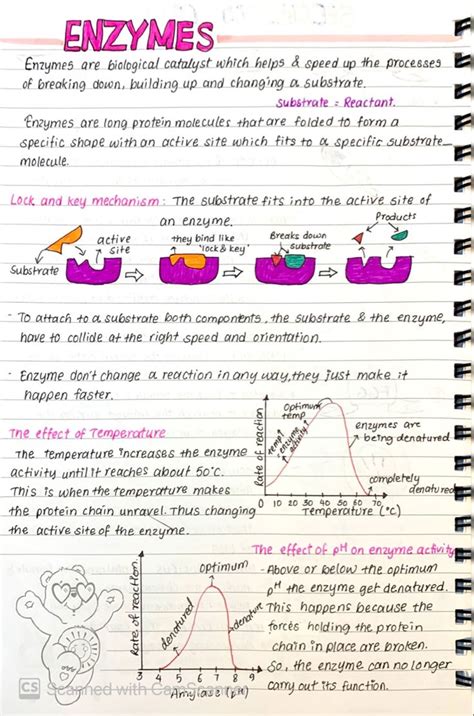 ENZYMES
Enzymes are biological catalyst which helps & speed up the processes
of breaking down, building up and changing a substrate.
Substrate = Reactant.
Enzymes are long protein molecules that are folded to form a
specific shape with an active site which fits to a specific substrate
molecule.
Lock and key mechanism: The substrate fits into the active site of
an enzyme.
Products
active
site
they bind like
'lock & key'
Breaks down
substrate
Substrate
- To attach to a substrate both components, the substrate & the enzyme,
have to collide at the right speed and orientation.
- Enzyme don't change a reaction in any way, they just make it
happen faster.
The effect of Temperature
The temperature increases the enzyme
activity until it reaches about 50°C.
This is when the temperature makes
the protein chain unravel. Thus changing
the active site of the enzyme.
Rate of reaction
optimum
temp
temp↑
enzyme
activity↑
enzymes are
being denatured
completely
denatured
0 10 20 30 40 50 60 70
Temperature (°C)
The effect of pH on enzyme activity
- Above or below the optimum
pH the enzyme get denatured.
This happens because the
forces holding the protein
chain in place are broken.
So, the enzyme can no longer
carry out its function.
Rate of reaction.
optimum
denatured
denature
3 4 5 6 7 8 9
Amylase (pH)
CS Scanned with CamScanner